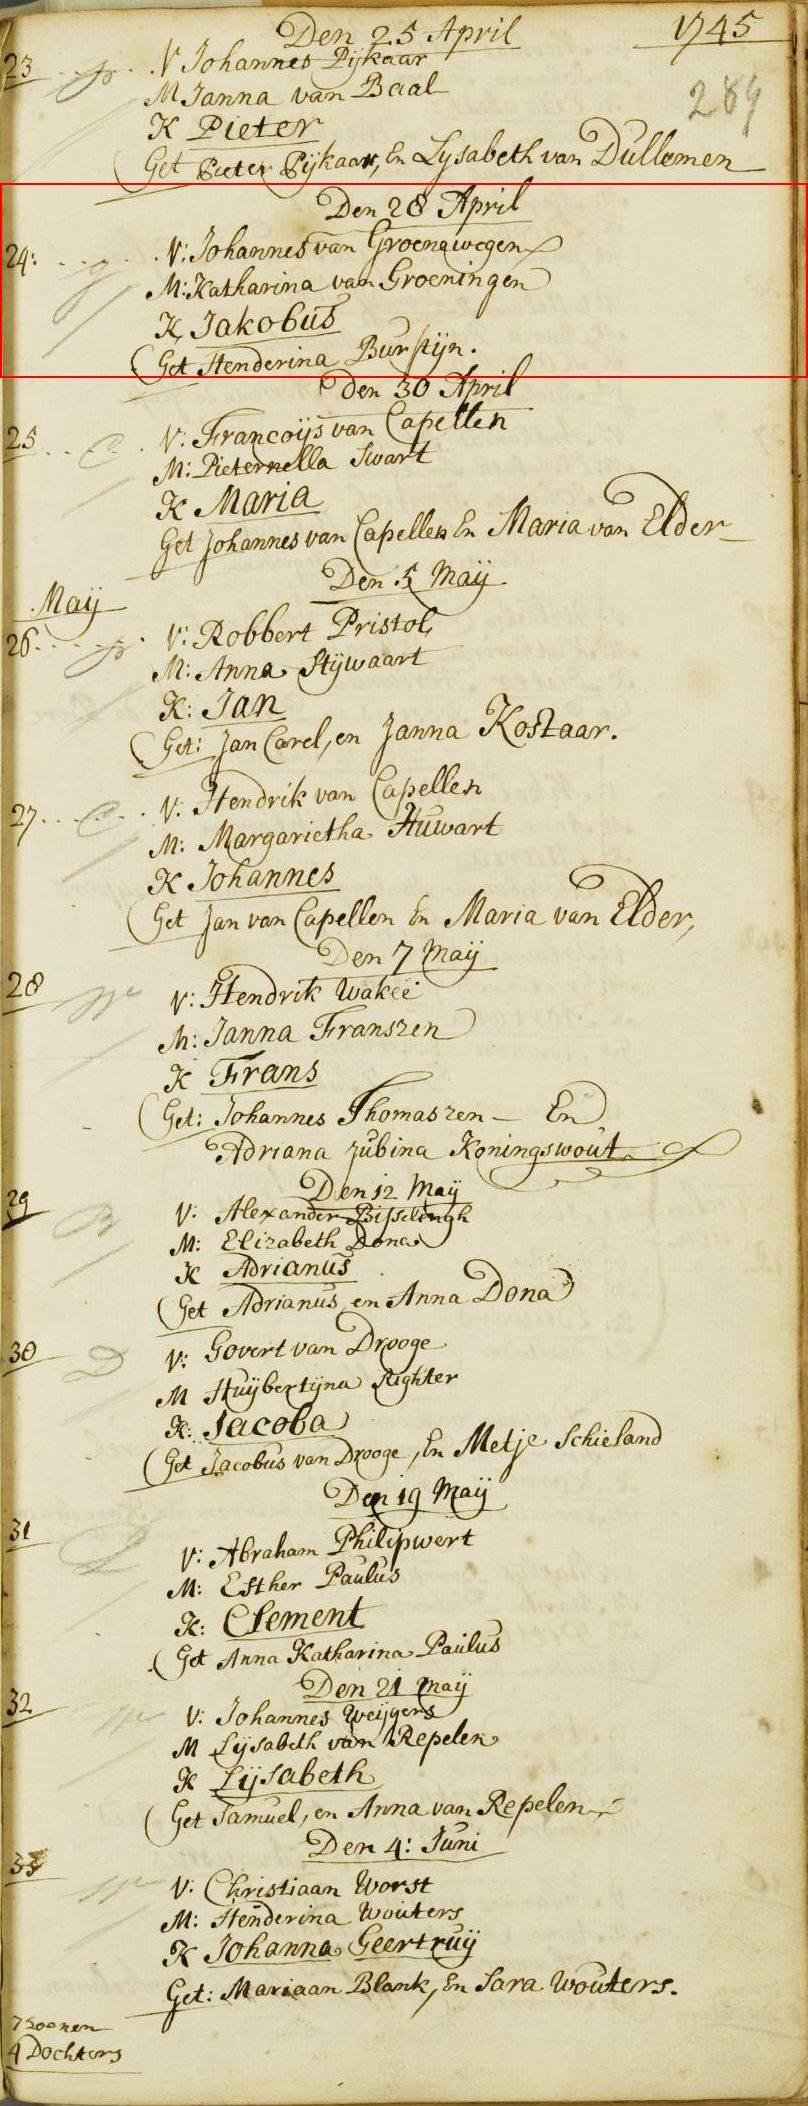 Den 25 April 1745
289
23 . . p . V Johannes Pijkaar
M Janna van Baal
K Pieter
Get Pieter Pijkaar, En Lysabeth van Dullemen
Den 28 April
24: . . g . . V: Johannes van Groenewegen
M: Katharina van Groeningen
K, Jakobus
(Get Henderina Burstijn.
Den 30 April
25 . . C . V: Francoijs van Capellen
M: Pieternella Swart
K Maria
Get Johannes van Capellen En Maria van Elder
Den 5 Maij
Maij
26 . . . . p . V: Robbert Pristol,
M: Anna Stijwaart
K: Jan
(Get: Jan Carel, en Janna Kostaar.
27 . . . C . . V: Hendrik van Capellen
M: Margarietha Huwart
K Johannes
(Get Jan van Capellen En Maria van Elder,
Den 7 Maij
28 W V: Hendrik Wakeé
M: Janna Franszen
K Frans
(Get: Johannes Thomaszen — En
Adriana Jubina Koningswout
Den 12 Maij
29 B V: Alexander Bisselingh
M: Elizabeth Dona
K Adrianus
(Get Adrianus, en Anna Dona
30 D V: Govert van Drooge
M Huijbertijna Righter
K: Jacoba
(Get Jacobus van Drooge, En Metje Schieland
Den 19 Maij
31 V: Abraham Philipwert
M: Esther Paulus
K: Clement
(Get Anna Katharina Paulus
Den 21 Maij
32 W V: Johannes Weijgers
M Lijsabeth van Repelen
K Lijsabeth
(Get Samuel, en Anna van Repelen
Den 4: Juni
33 W V: Christiaan Worst
M: Henderina Wouters
K Johanna Geertruij
Get: Mariaan Blank, En Sara Wouters.
7 Soonen
4 Dochters